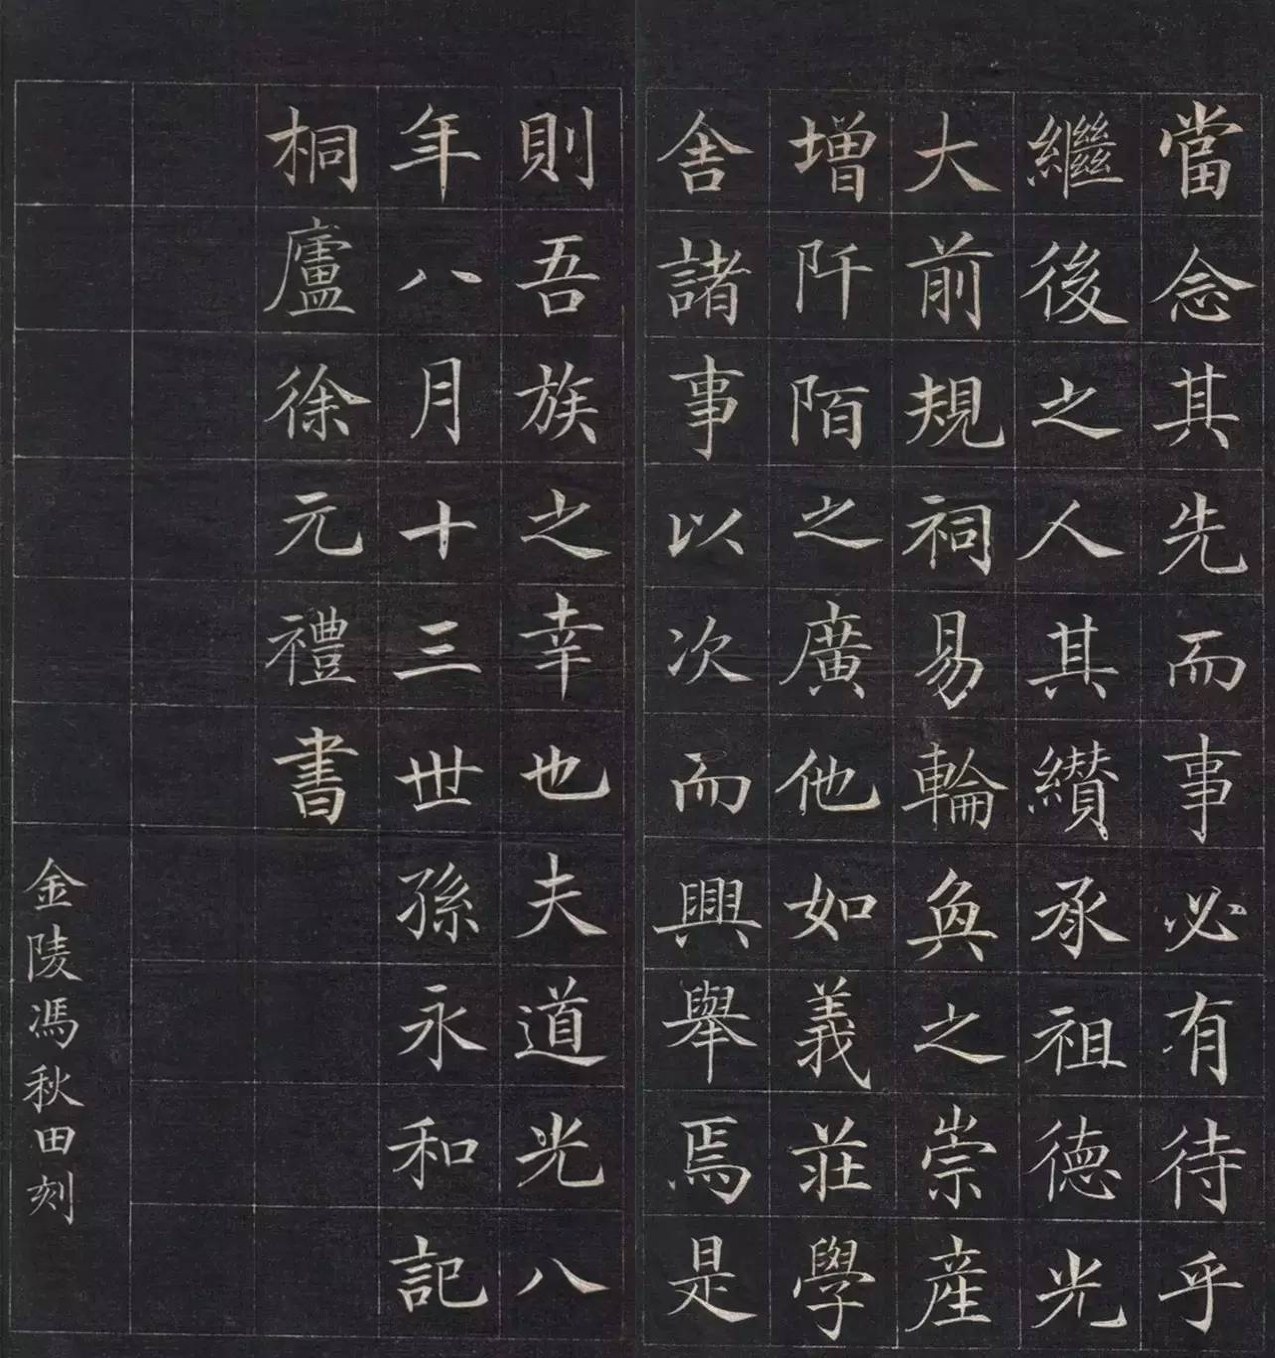 當念其先而事必有待乎
繼後之人其纘承祖德光
大前規祠易輪奐之崇產
增阡陌之廣他如義莊學
舍諸事以次而興舉焉是
則吾族之幸也夫道光八
年八月十三世孫永和記
桐廬徐元禮書
金陵馮秋田刻